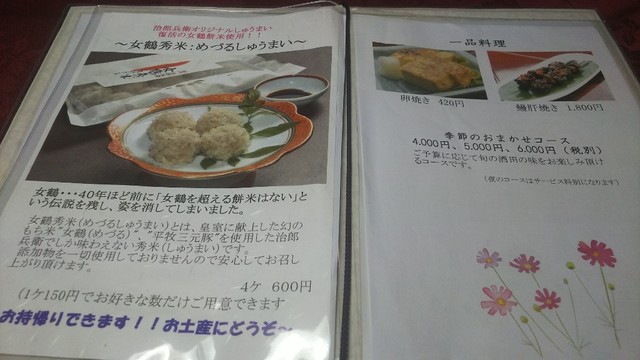 治郎兵衛オリジナルしゅうまい
復活の女鶴餅米使用！！
～女鶴秀米：めづるしゅうまい～
女鶴・・・40年ほど前に「女鶴を超える餅米はない」と
いう伝説を残し、姿を消してしまいました。
女鶴秀米（めづるしゅうまい）とは、皇室に献上した幻の
もち米"女鶴（めづる）""平牧三元豚"を使用した治郎
兵衛でしか味わえない秀米（しゅうまい）です。
添加物を一切使用しておりませんので安心してお召し
上がり頂けます。
4ケ 600円
（1ケ150円でお好きな数だけご用意できます
お持帰りできます！！お土産にどうぞ～
一品料理
卵焼き 420円
鰻肝焼き 1.800円
季節のおまかせコース
4.000円、5.000円、6.000円（税別）
ご予算に応じて旬の酒田の味をお楽しみ頂け
るコースです。
（夜のコースはサービス料別になります）